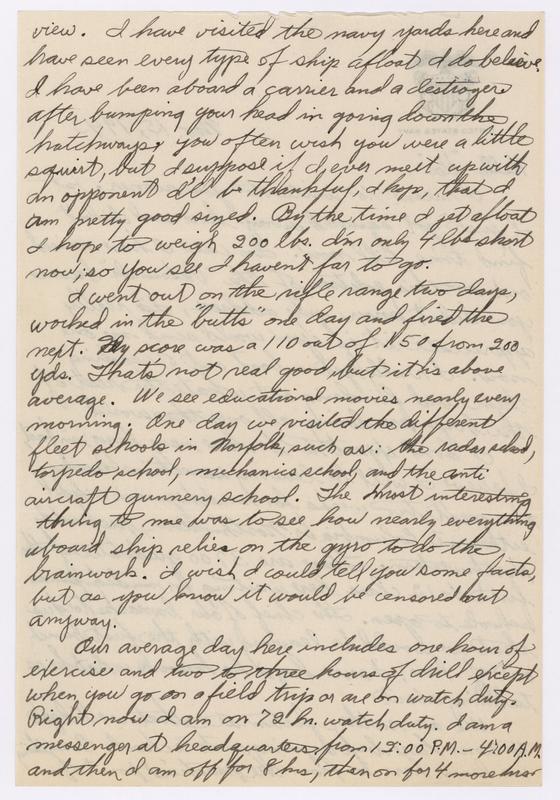 view. I have visited the navy yards here and
have seen every type of ship afloat I do believe.
I have been aboard a carrier and a destroyer
after bumping your head in going down the
hatchways, you often wish you were a little
squirt, but I suppose if I ever meet up with
an opponent I'll be thankful, I hope, that I
am pretty good sized. By the time I get afloat
I hope to weigh 200 lbs. I'm only 4 lbs short
now, so you see I haven't far to go.
I went out on the rifle range two days,
worked in the "butts" one day and fired the
next. My score was a 110 out of 150 from 200
yds. Thats not real good but it is above
average. We see educational movies nearly every
morning. One day we visited the different
fleet schools in Norfolk, such as: the radar school,
torpedo school, mechanics school, and the anti
aircraft gunnery school. The most interesting
thing to me was to see how nearly everything
aboard ship relies on the gyro to do the
brainwork. I wish I could tell you some facts,
but as you know it would be censored out
anyway.
Our average day here includes one hour of
exercise and two to three hours of drill except
when you go on a field trip or are on watch duty.
Right now I am on 72 hr. watch duty. I am a
messenger at headquarters from 12:00 P.M. - 4:00 A.M.
and then I am off for 8 hrs, then on for 4 more hrs